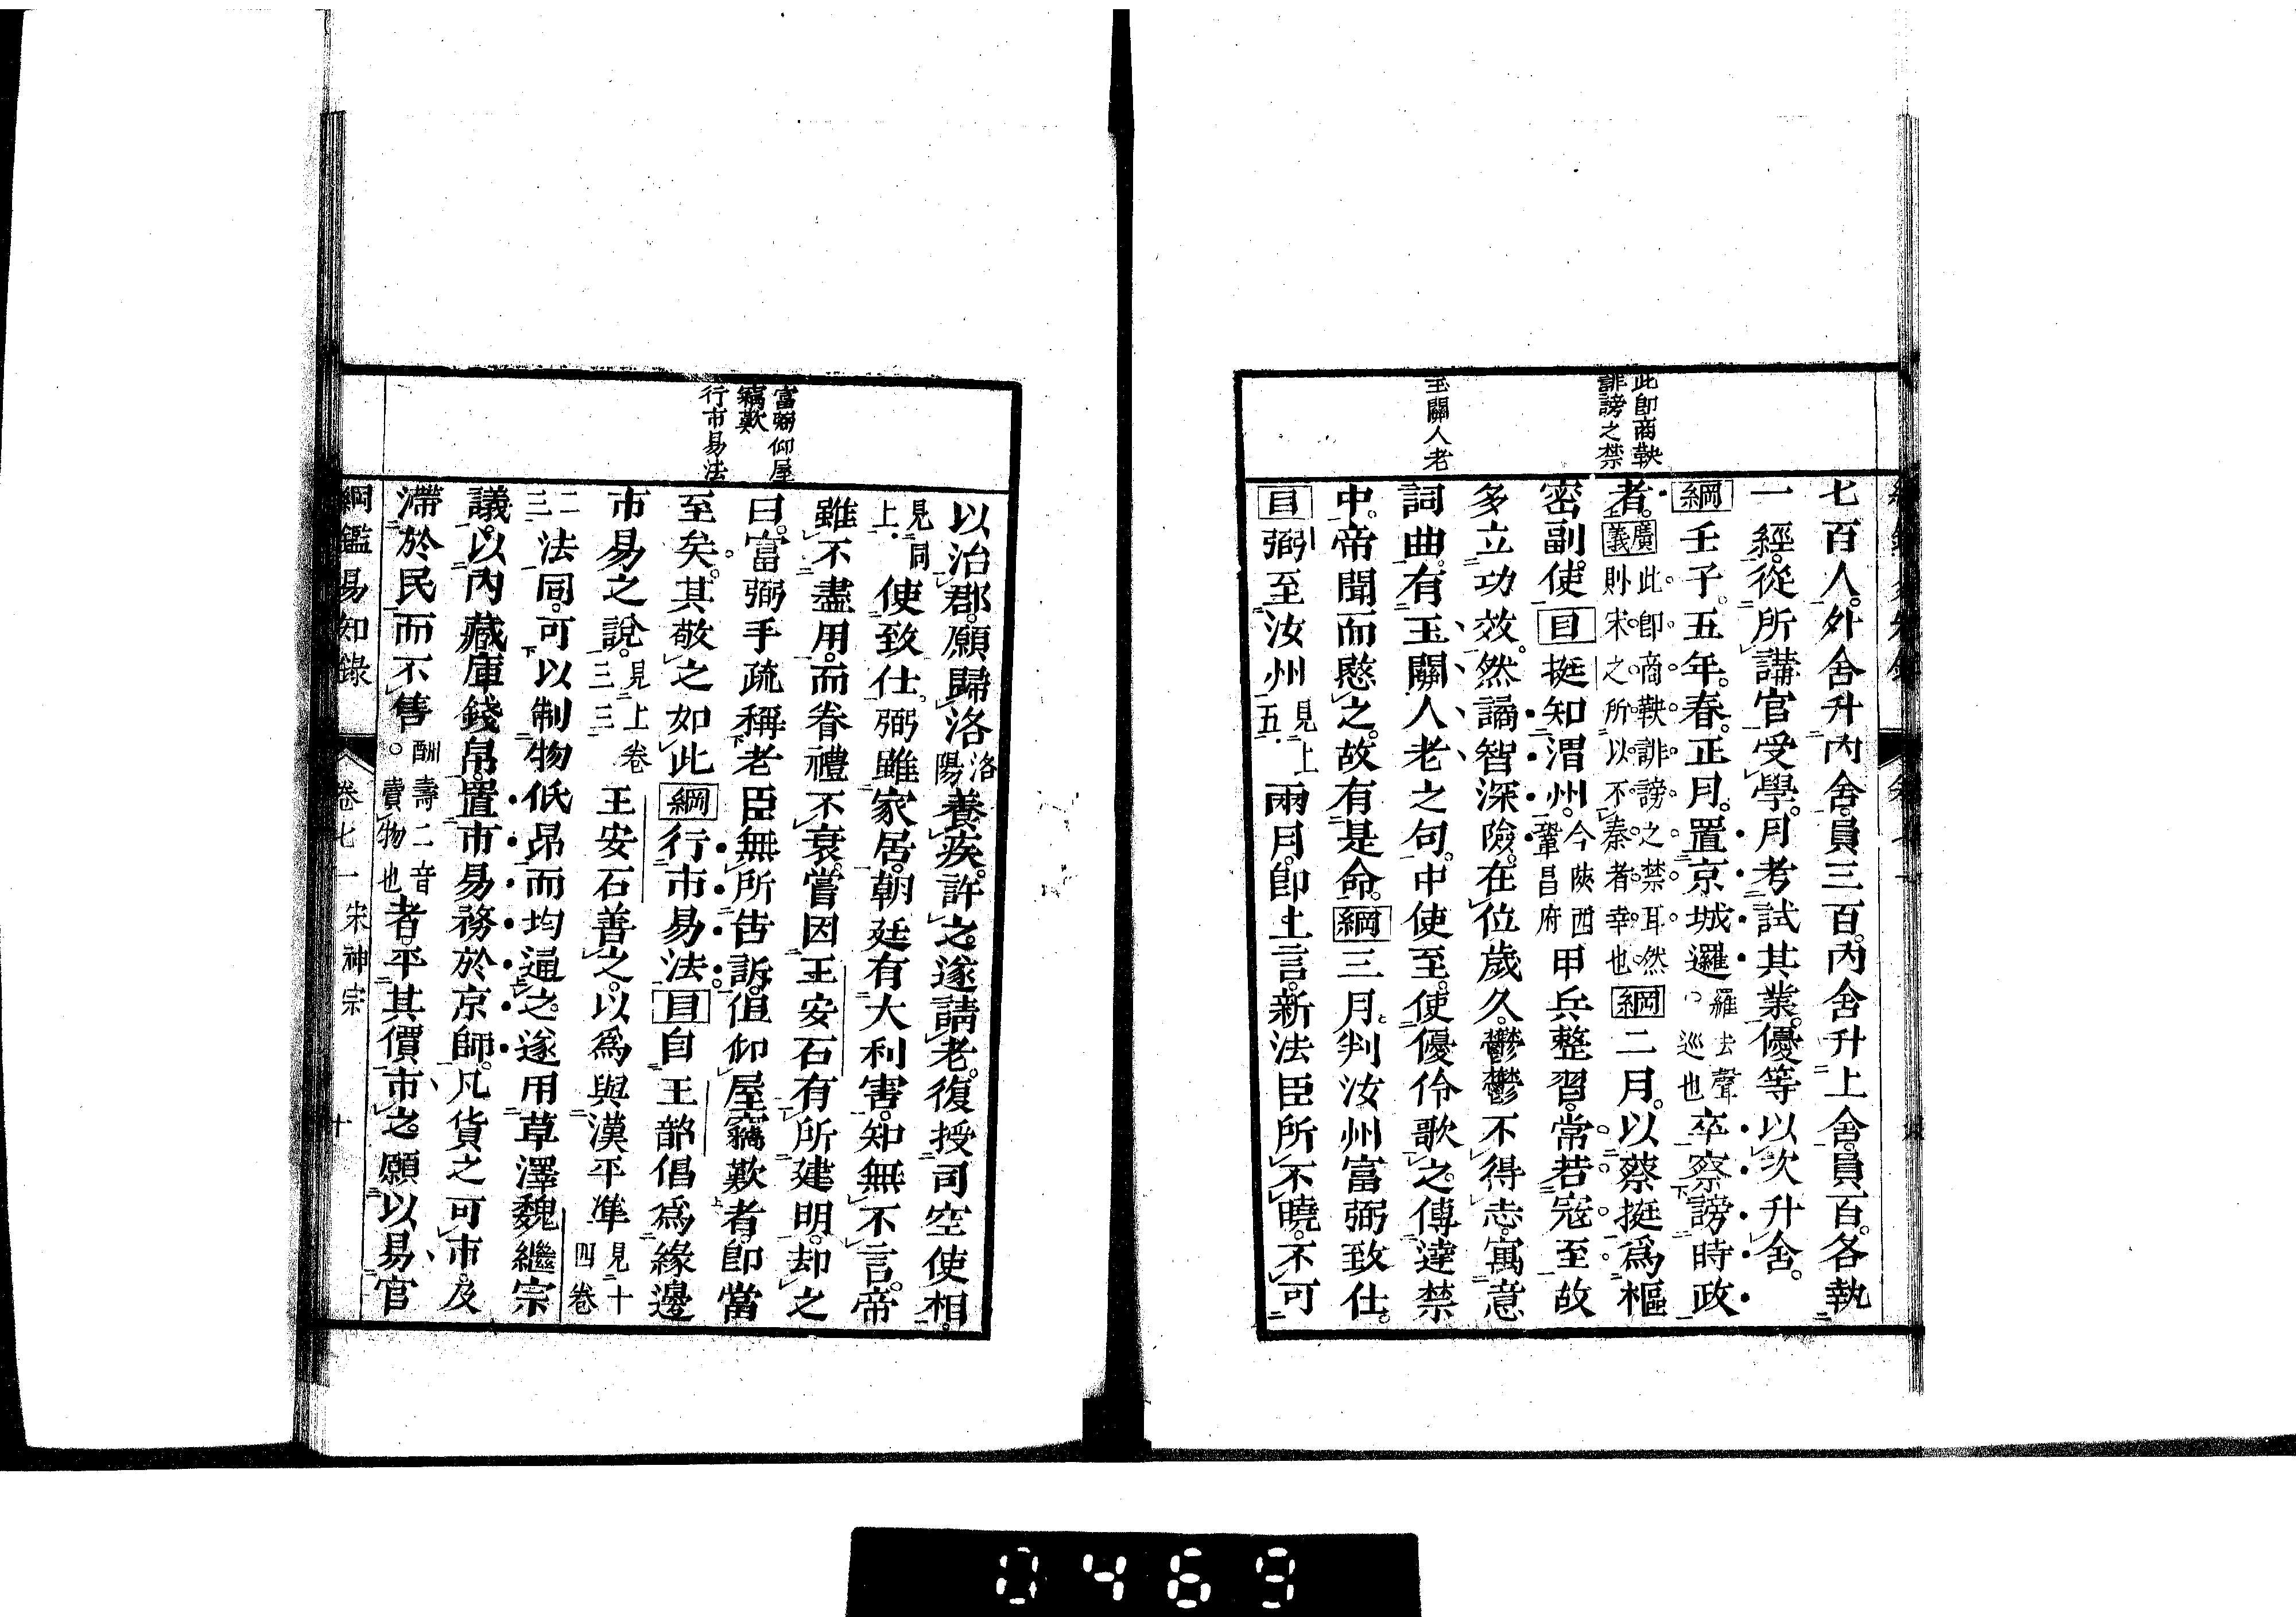 此即商鞅
誹謗之禁
玉關人老
七百人。外舍升內舍。員三百。內舍升上舍。員百。各執
一經。從所講官受學。月考試其業。優等以次升舍。
綱壬子。五年。春。正月。置京城邏羅去聲巡也卒察謗時政
者。廣義此即商鞅誹謗之禁耳然則宋之所以不秦者幸也綱二月。以蔡挺爲樞
密副使。目挺知渭州。今陝西鞏昌府甲兵整習。常若寇至。故
多立功效。然譎智深險。在位歲久。鬱鬱不得志。寓意
詞曲。有玉關人老之句。中使至。使優伶歌之。傳達禁
中。帝聞而愍之。故有是命。綱三月。判汝州富弼致仕。
目弼至汝州見上五兩月。即上言。新法臣所不曉。不可
富弼仰屋
竊歎
行市易法
以治郡。願歸洛洛陽養疾。許之。遂請老。復授司空使相。
見上同使致仕。弼雖家居。朝廷有大利害。知無不言。帝
雖不盡用。而眷禮不衰。嘗因王安石有所建明。却之
曰。富弼手疏稱老臣無所告訴。但仰屋竊歎者。即當
至矣。其敬之如此綱行市易法。目自王韶倡爲緣邊
市易之說。見上卷三三王安石善之。以爲與漢平準見十四卷
二三法同。可以制物低昂而均通之。遂用草澤魏繼宗
議。以內藏庫錢帛。置市易務於京師。凡貨之可市。及
滯於民而不售。酬壽二音賣物也者。平其價市之。願以易官
綱鑑易知錄 卷七一 宋神宗 十